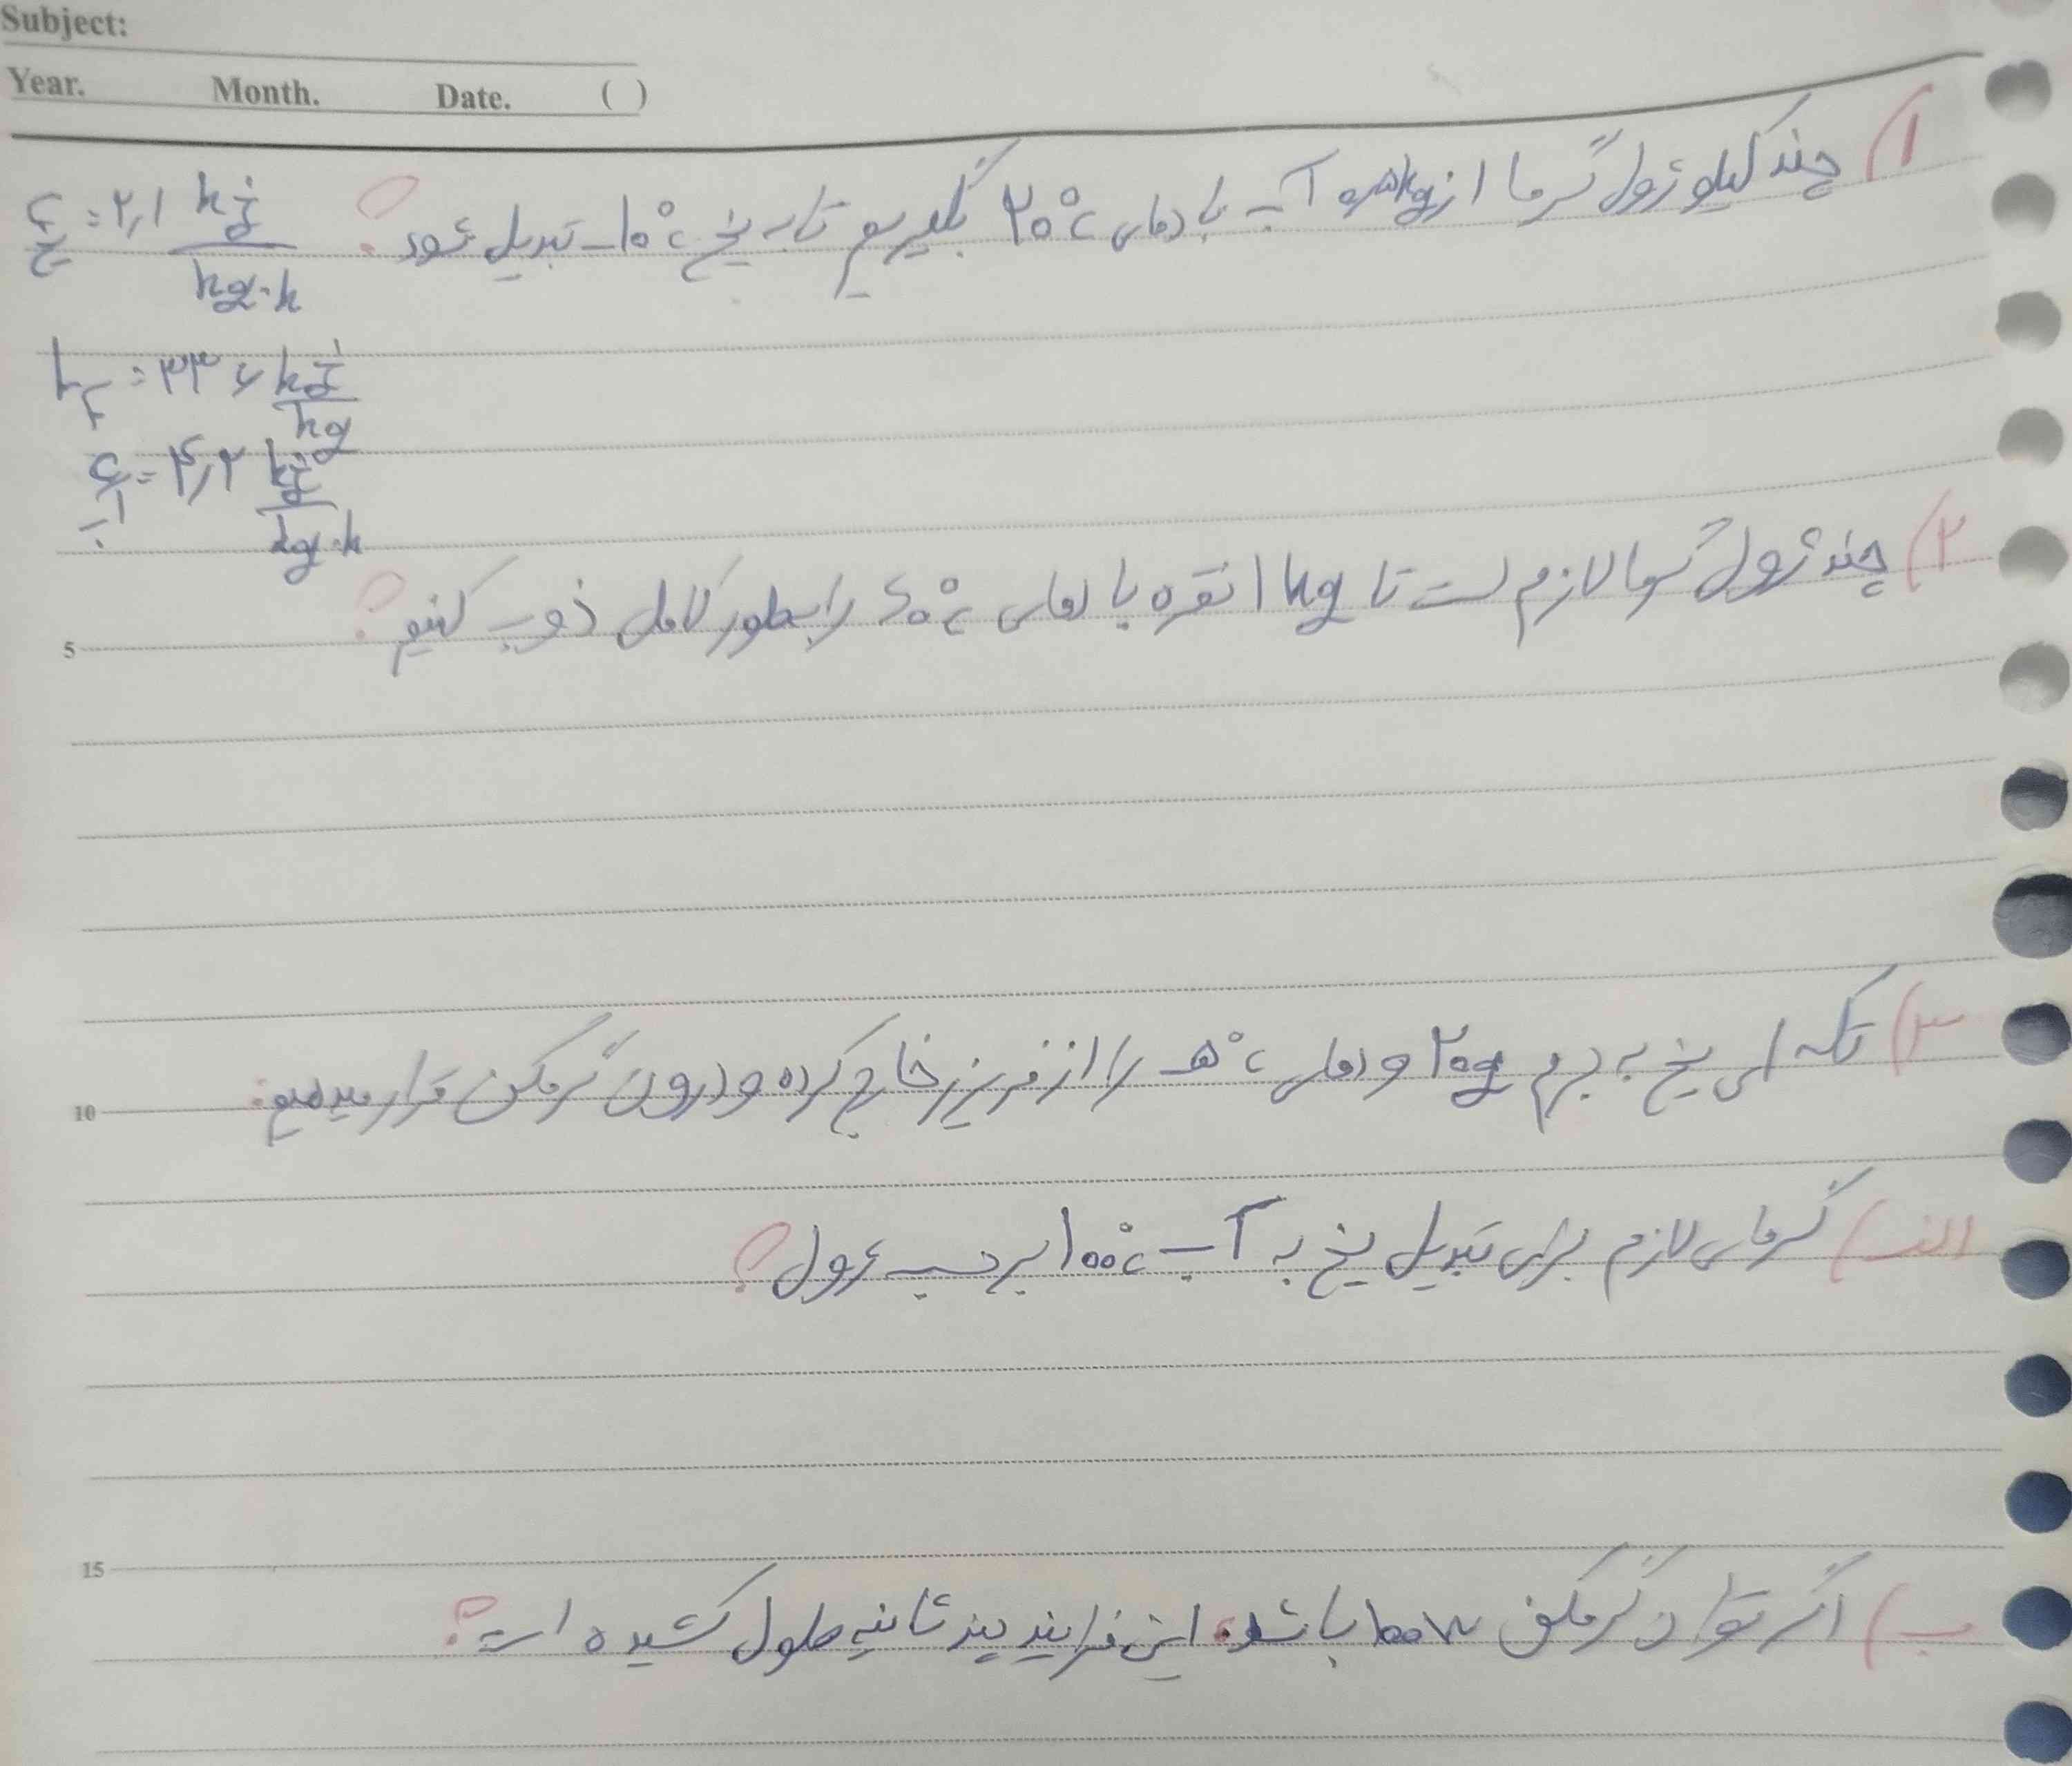 Subject:
Year. Month. Date. ( )
۱) چند کیلو ژول گرما از kg آب با دمای ۲۰°c بگیریم تا به یخ ۱۰°c- تبدیل شود؟
c یخ = ۲٫۱ kj/kg.k
L F = ۳۳۶ kj/kg
c آب = ۴٫۲ kj/kg.k
۲) چند ژول گرما لازم است تا ۱kg نقره با دمای ۶۰°c را بطور کامل ذوب کنیم؟
5
۳) تکه ای یخ به جرم ۲۰g و دمای ۵°c- را از فریزر خارج کرده و درون گرمکن قرار میدهیم:
10
الف) گرمای لازم برای تبدیل یخ به آب ۱۰۰°c برحسب ژول؟
15
ب) اگر توان گرمکن ۱۰۰w باشد، این فرایند چند ثانیه طول کشیده است؟